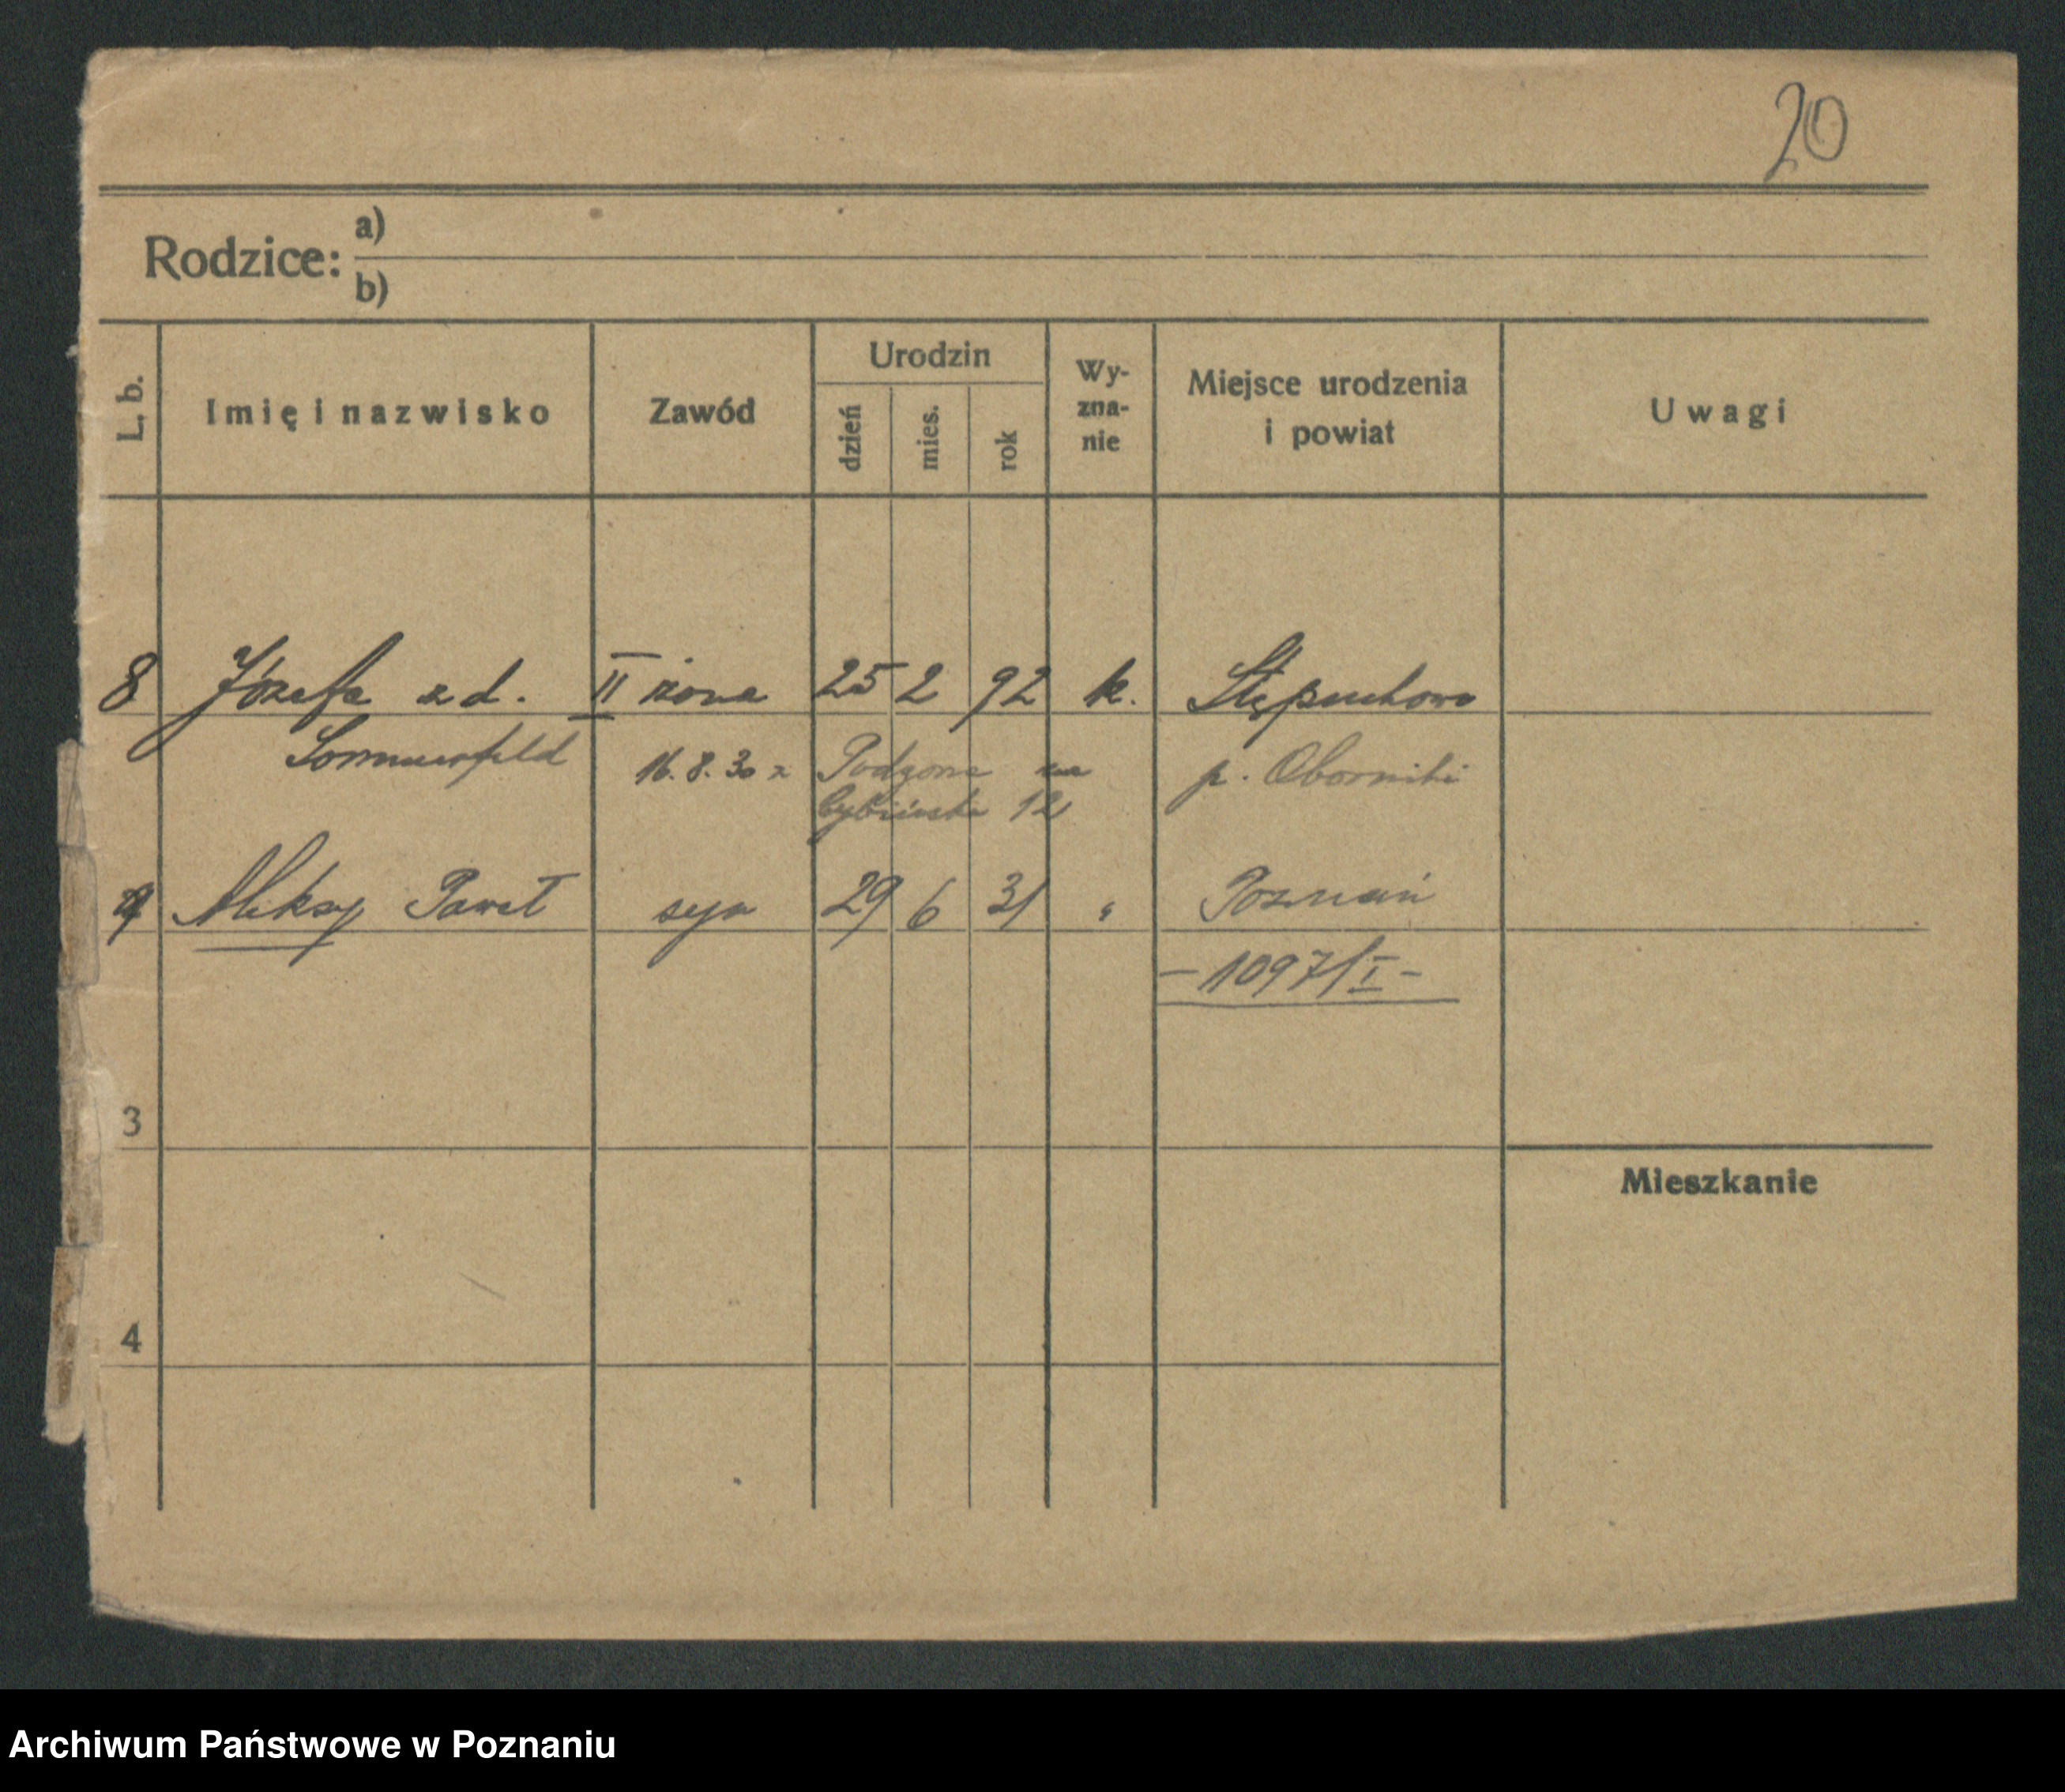 20
Rodzice:
a)
b)
L. b.
Imię i nazwisko
Zawód
Urodzin
dzień
mies.
rok
Wy-
zna-
nie
Miejsce urodzenia
i powiat
Uwagi
8 Józefa z d. II żona 25 2 92 k. Stępuchowo
Sommerfeld 16.8.30 z Podgórna na p. Oborniki
Cybińska 12
9 Aleksy Paweł syn 29 6 31 " Poznań
- 1097/I -
3
Mieszkanie
4
Archiwum Państwowe w Poznaniu